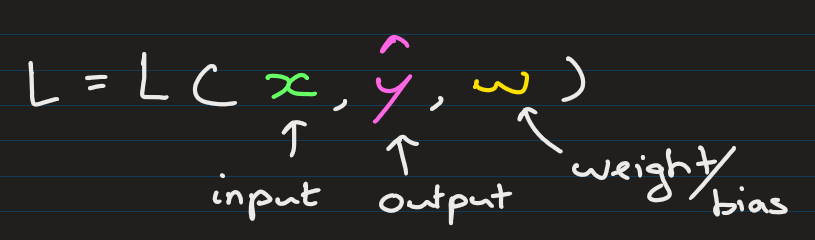 L = L ( x , ŷ , w )
input output weight/
bias